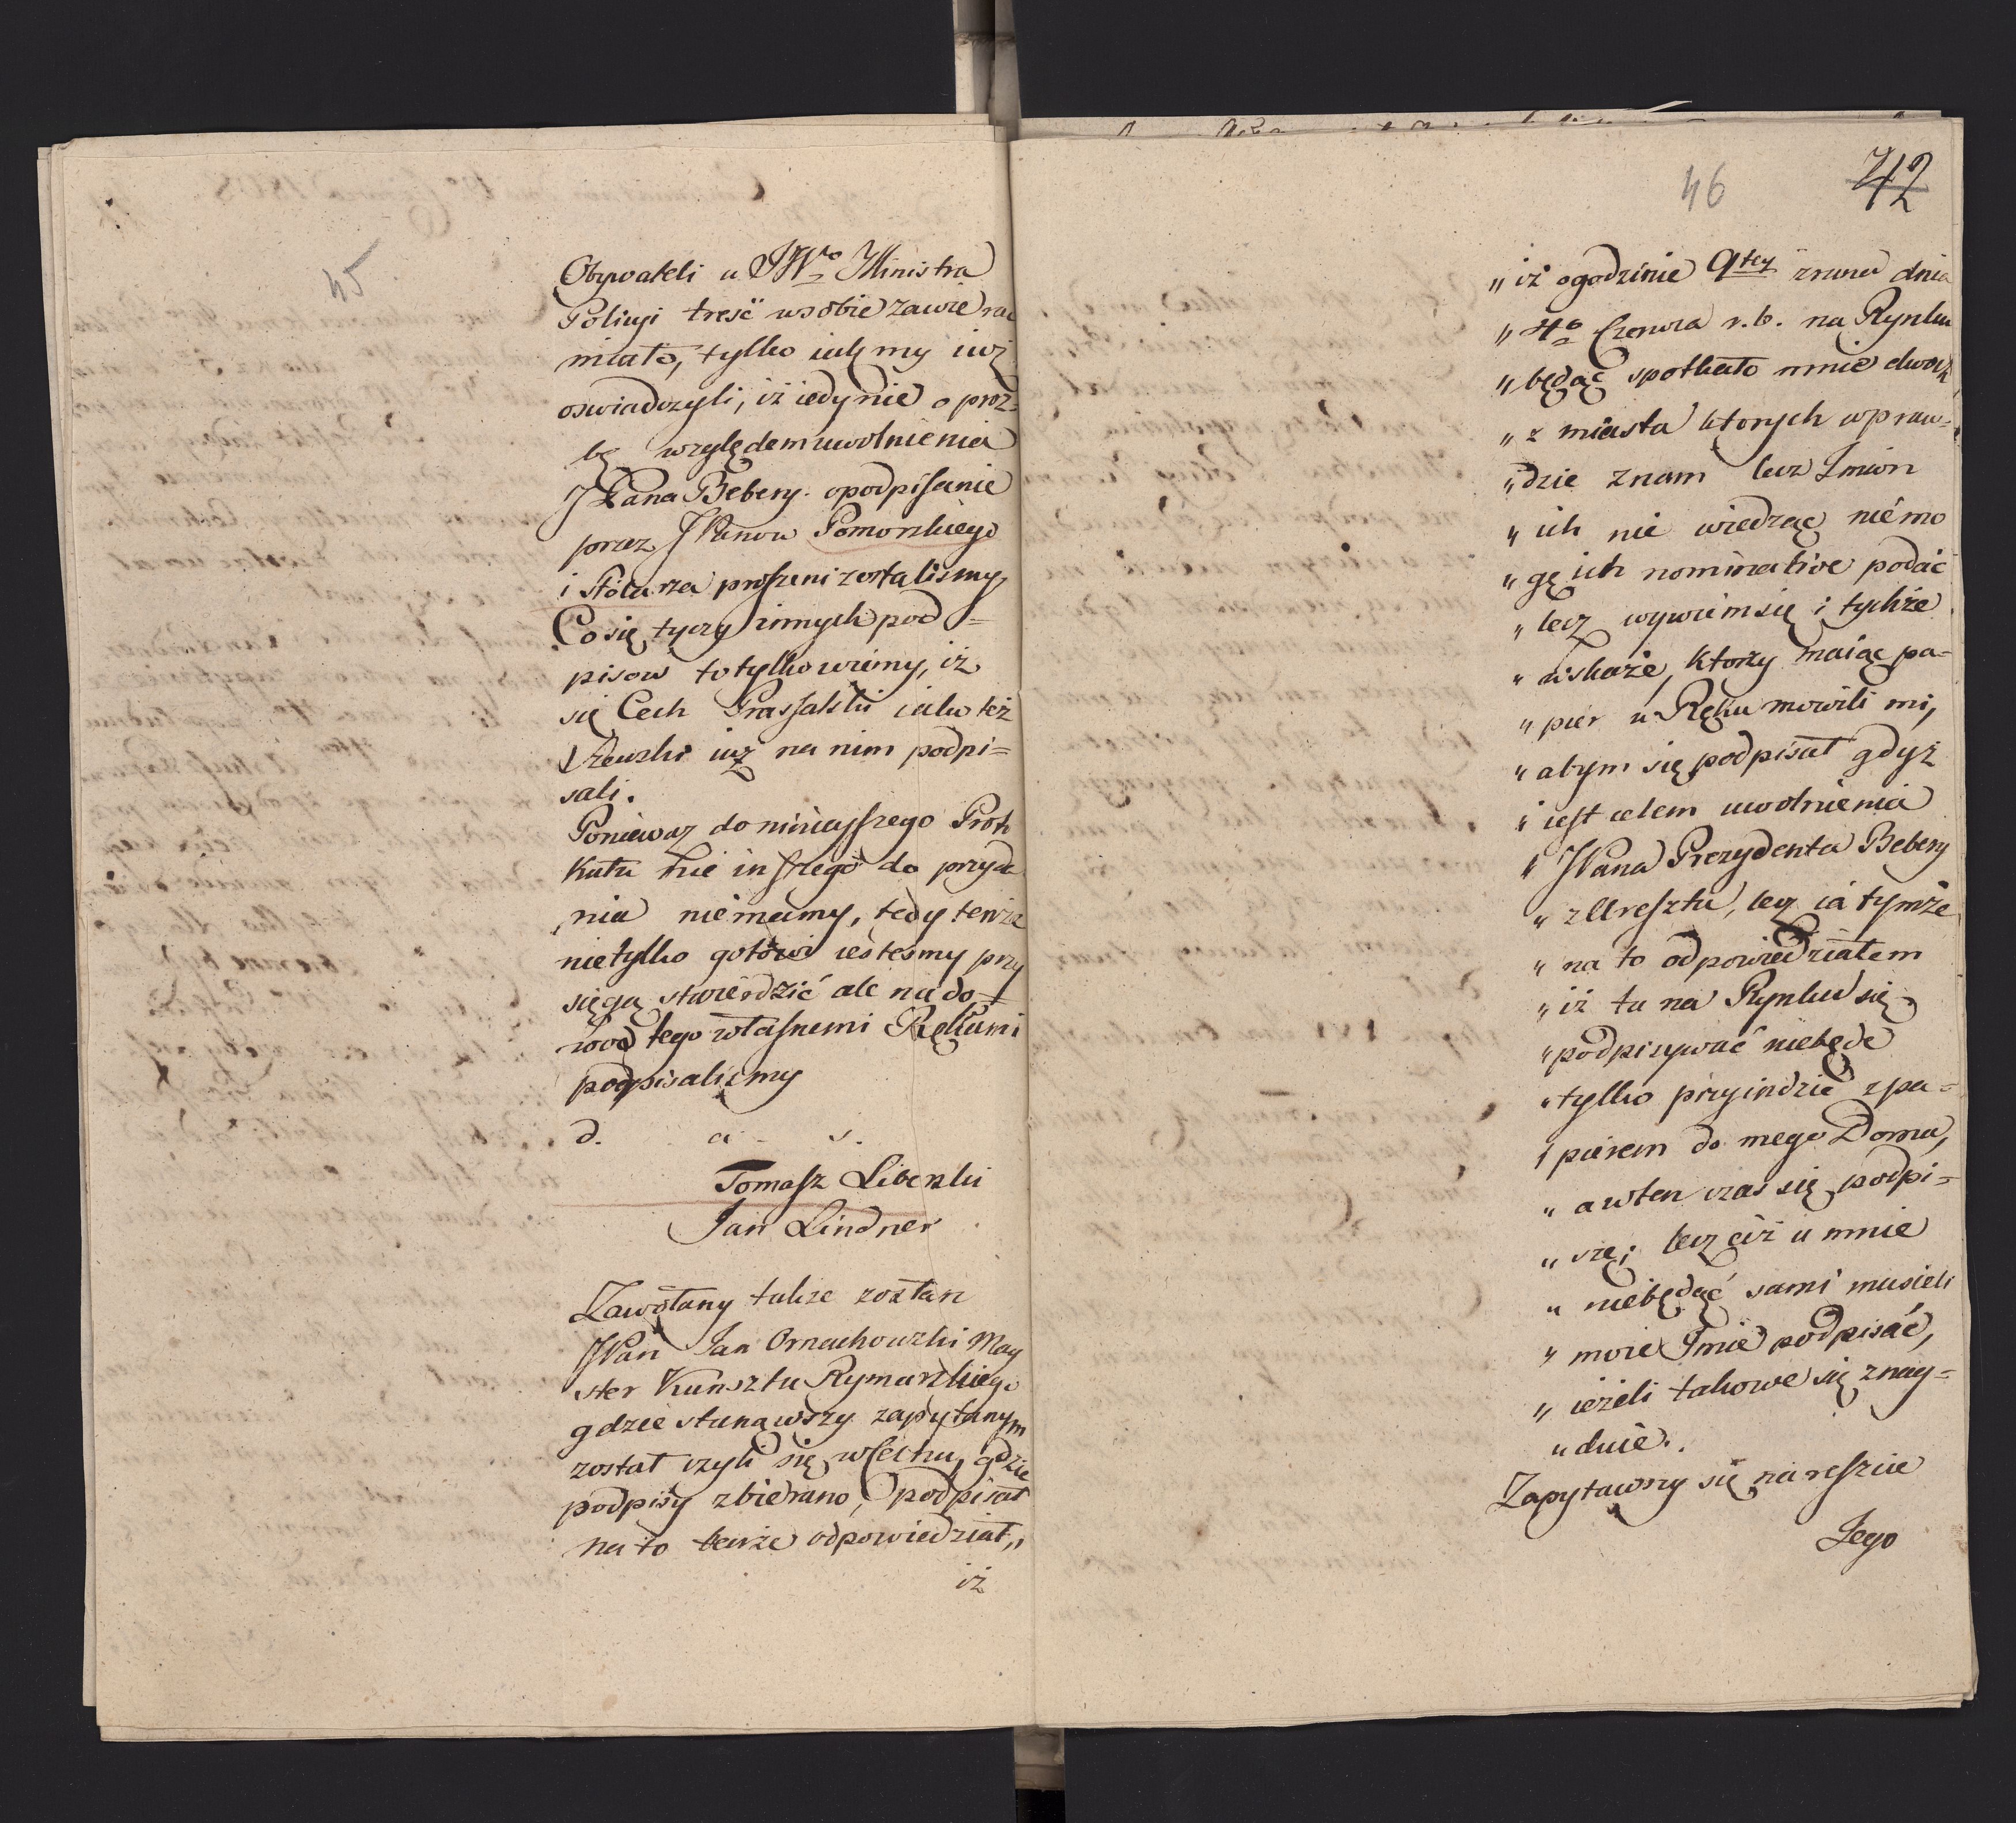 45
Obywateli u JWo Ministra
Policyi treść w sobie zawierac
miało, tylko iak my iuż
oswiadczyli, iż iedynie o proz=
bę względem uwolnienia
JPana Bebery. o podpisanie
przez JPanow Pomorskiego
i Stolarza proszeni zostalismy
Co się tyczy innych pod=
pisow to tylko wiemy, iż
się Cech iako też
iuż na nim podpi=
sali.
Ponieważ do ninieyszego Proto
kułu nic inszego do przyda
nia niemamy, tedy tenże
nietylko gotowi iestesmy przy
sięgą stwierdzić ale na do=
wod tego własnemi Rękami
podpisalismy
d. a. s.
Tomasz Liberski
Jan Lindner
Zawołany także został
JPan Jan Ornachowski May
ster Kunsztu Rymarskiego
gdzie stanąwszy zapytanym
został czyli się w Cechu, gdzie
podpisy zbierano, podpisał
na to tenże odpowiedział„
iż
46 42
„ iż o godzinie 9tey zrana dnia
„ 4o Czerwca r.b. na Rynku
„ będąc spotkało mnie dwoch
„ z miasta ktorych wpraw=
„ dzie znam lecz Imion
„ ich nie wiedząc niemo
„ gę ich nominative podać
„ lecz wywiem się i tychże
„ wskaże, ktorzy maiąc pa=
„ pier w Ręku mowili mi,
„ abym się podpisał gdyż
„ iest celem uwolnienia
„ JPana Prezydenta Bebery
„ z Aresztu, lecz ia tymże
„ na to odpowiedziałem
„ iż tu na Rynku się
„ podpisywać niebęde
„ tylko przyindzie z pa=
„ pierem do mego Domu,
„ a wten czas się podpi=
„ szę; lecz ciż u mnie
„ niebędąć sami musieli
„ moie Imie podpisać,
„ ieżeli takowe się znay=
„ duie.
Zapytawszy się nareszcie
Jego